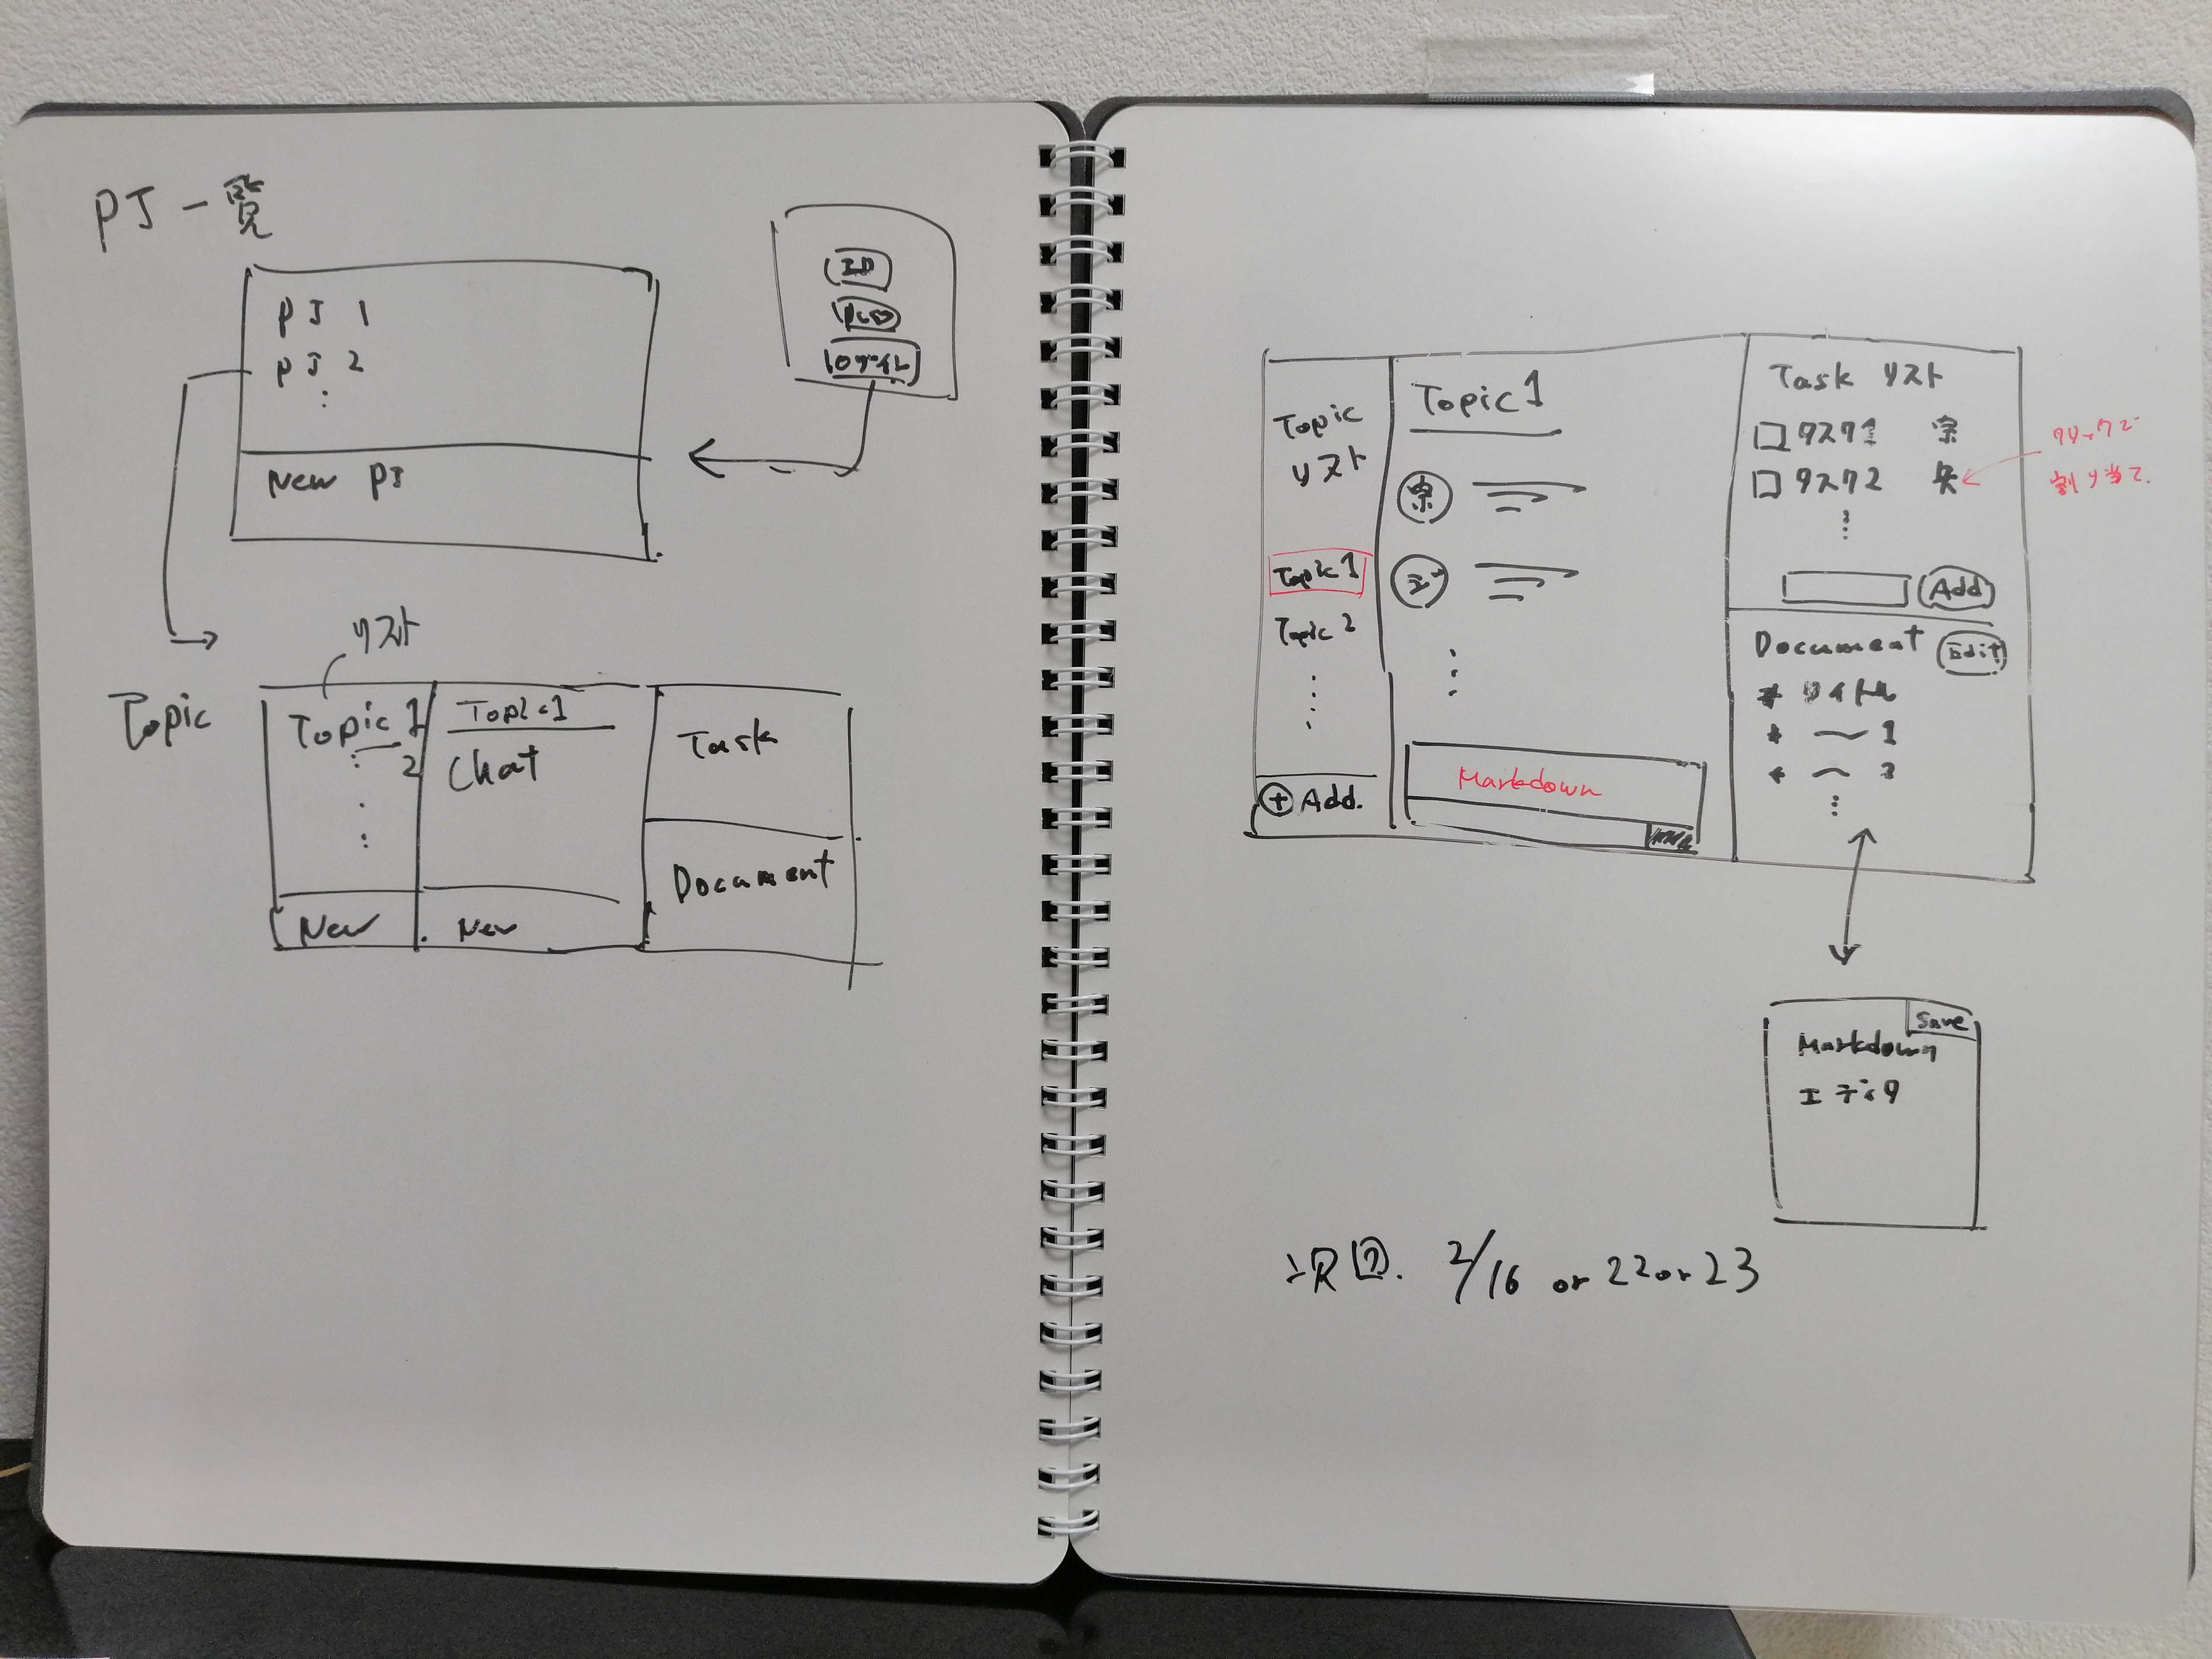 PJ一覧
PJ 1
PJ 2
New PJ
ID
PWD
ログイン
リスト
Topic
Topic 1
2
New
Topic1
Chat
New
Task
Document
Topic
リスト
Topic 1
Topic 2
Add.
Topic 1
Markdown
Task リスト
タスク1 宗
タスク2
Add
クリックで
割り当て
Document Edit
* タイトル
* 〜 1
Save
Markdown
エディタ
次回. 2/16 or 22 or 23